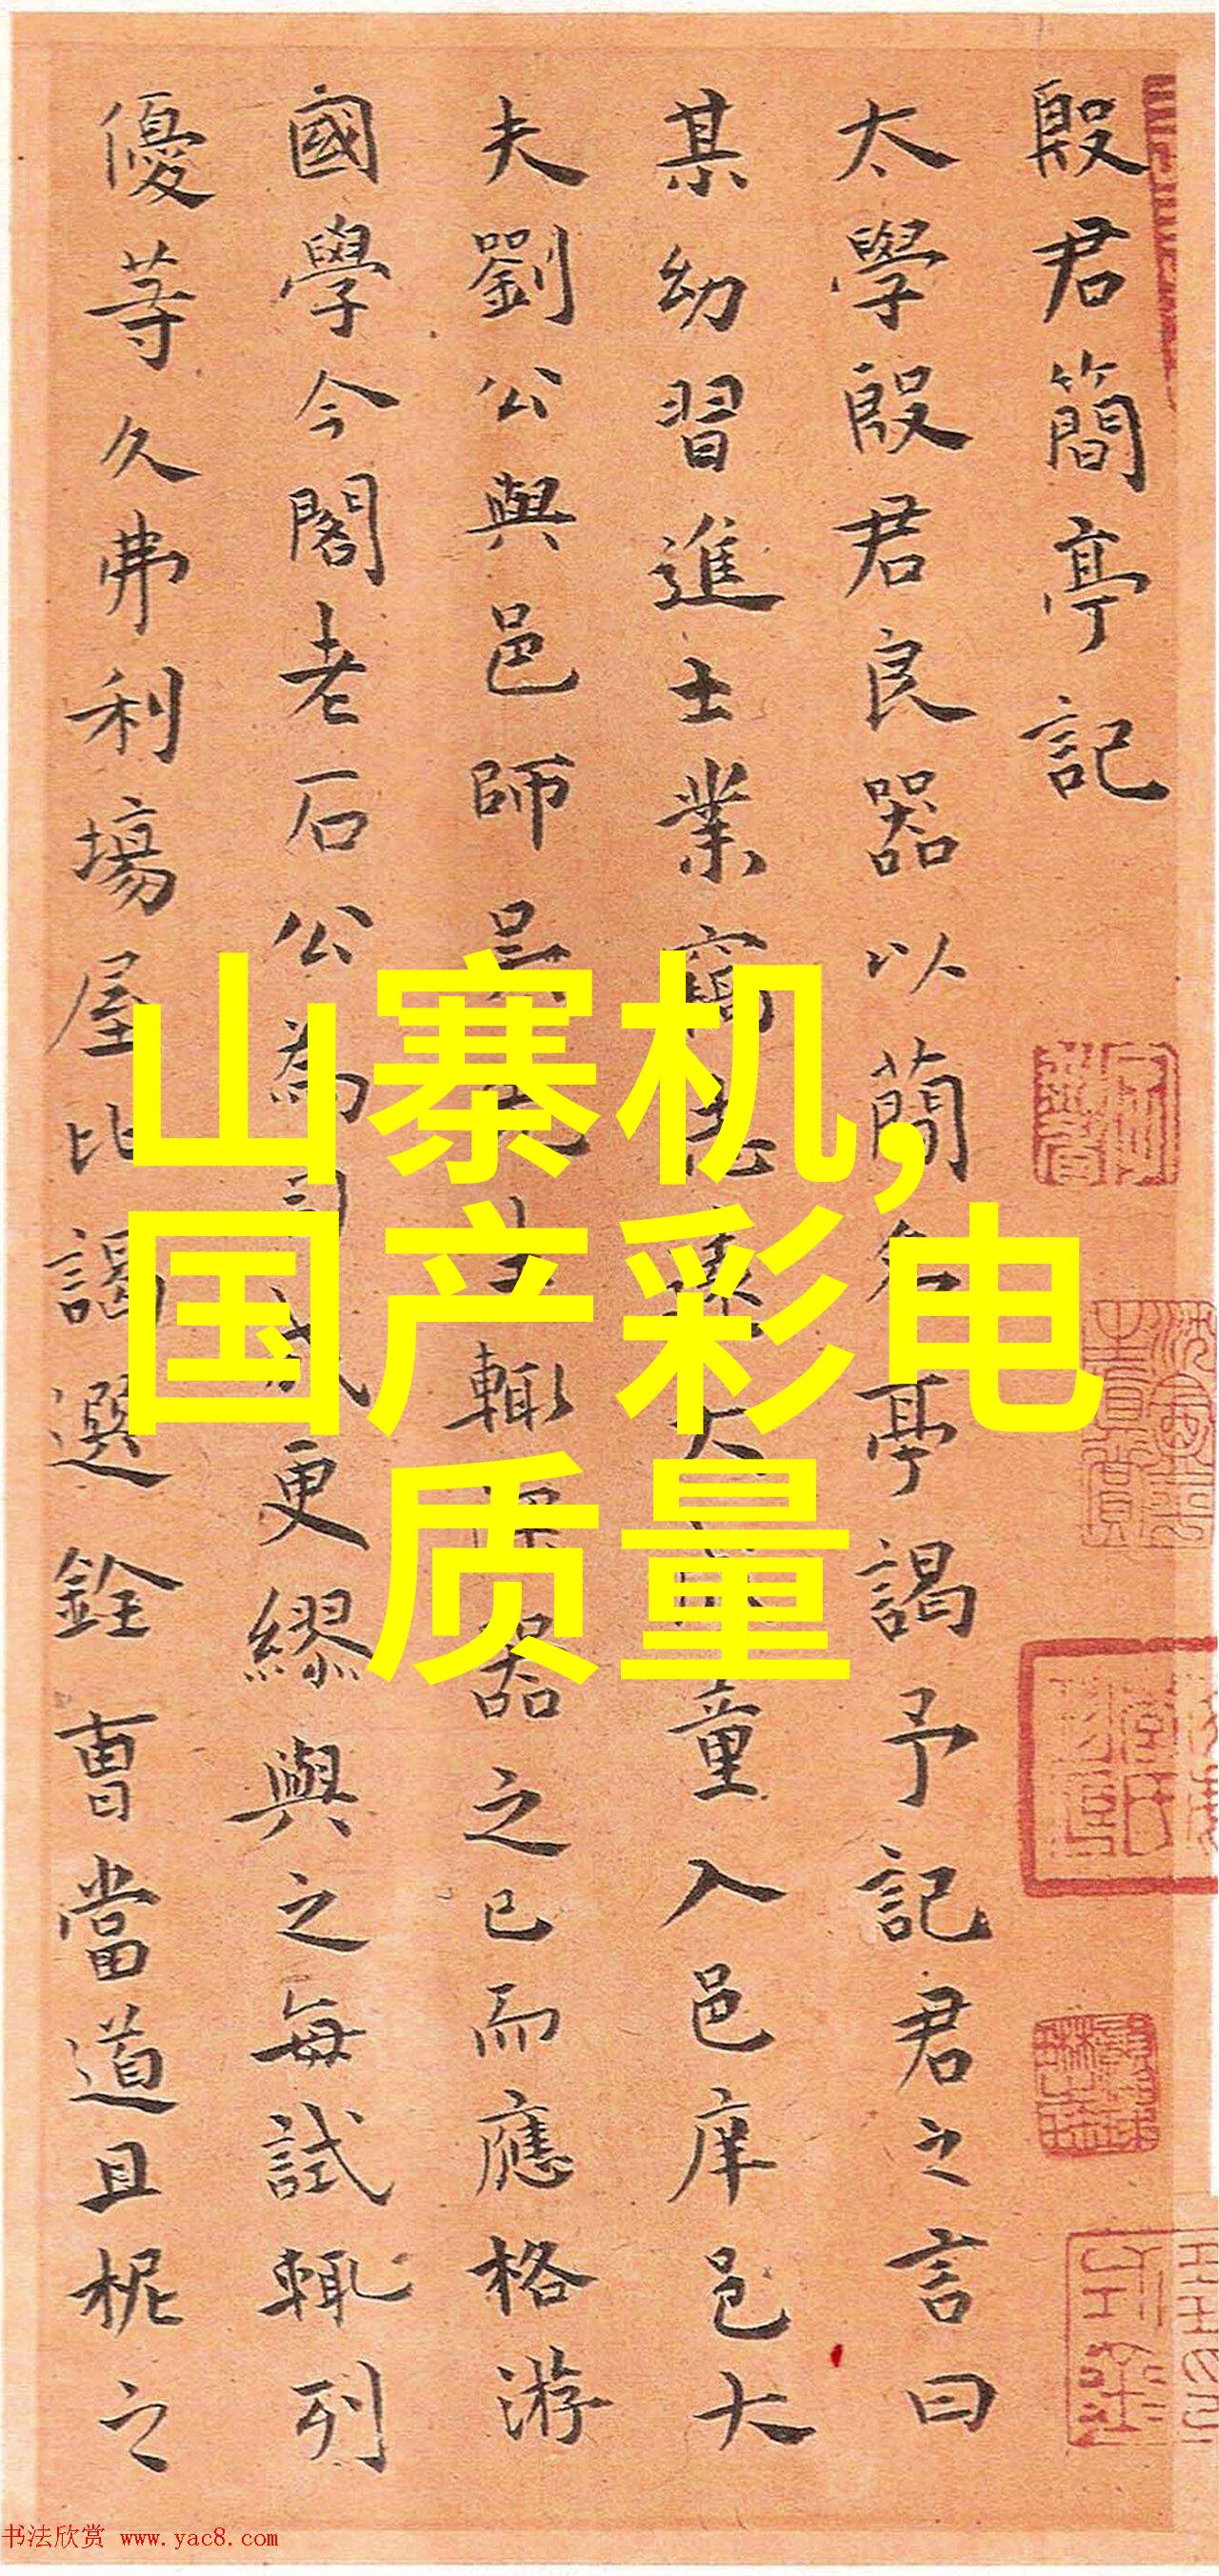 殷君簡亭記
太學殷君良器以簡名亭謁予記君之言曰
某幼習進士業竊大童入邑庠邑大
夫劉公與邑師吳先生輙器之已而應格游
國學今閣老石公為司成更繆與之每試輒列
優等久弗利場屋比謁選銓曹當道且柅之
山寨机,
国产彩电
质量
书法欣赏 www.yac8.com